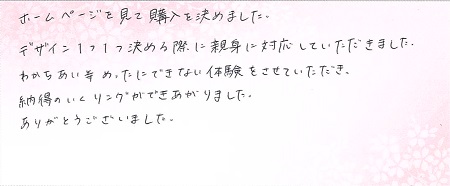 ホームページを見て購入を決めました。
デザイン1つ1つ決める際に親身に対応していただきました。
わかちあい等めったにできない体験をさせていただき、
納得のいくリングができあがりました。
ありがとうございました。